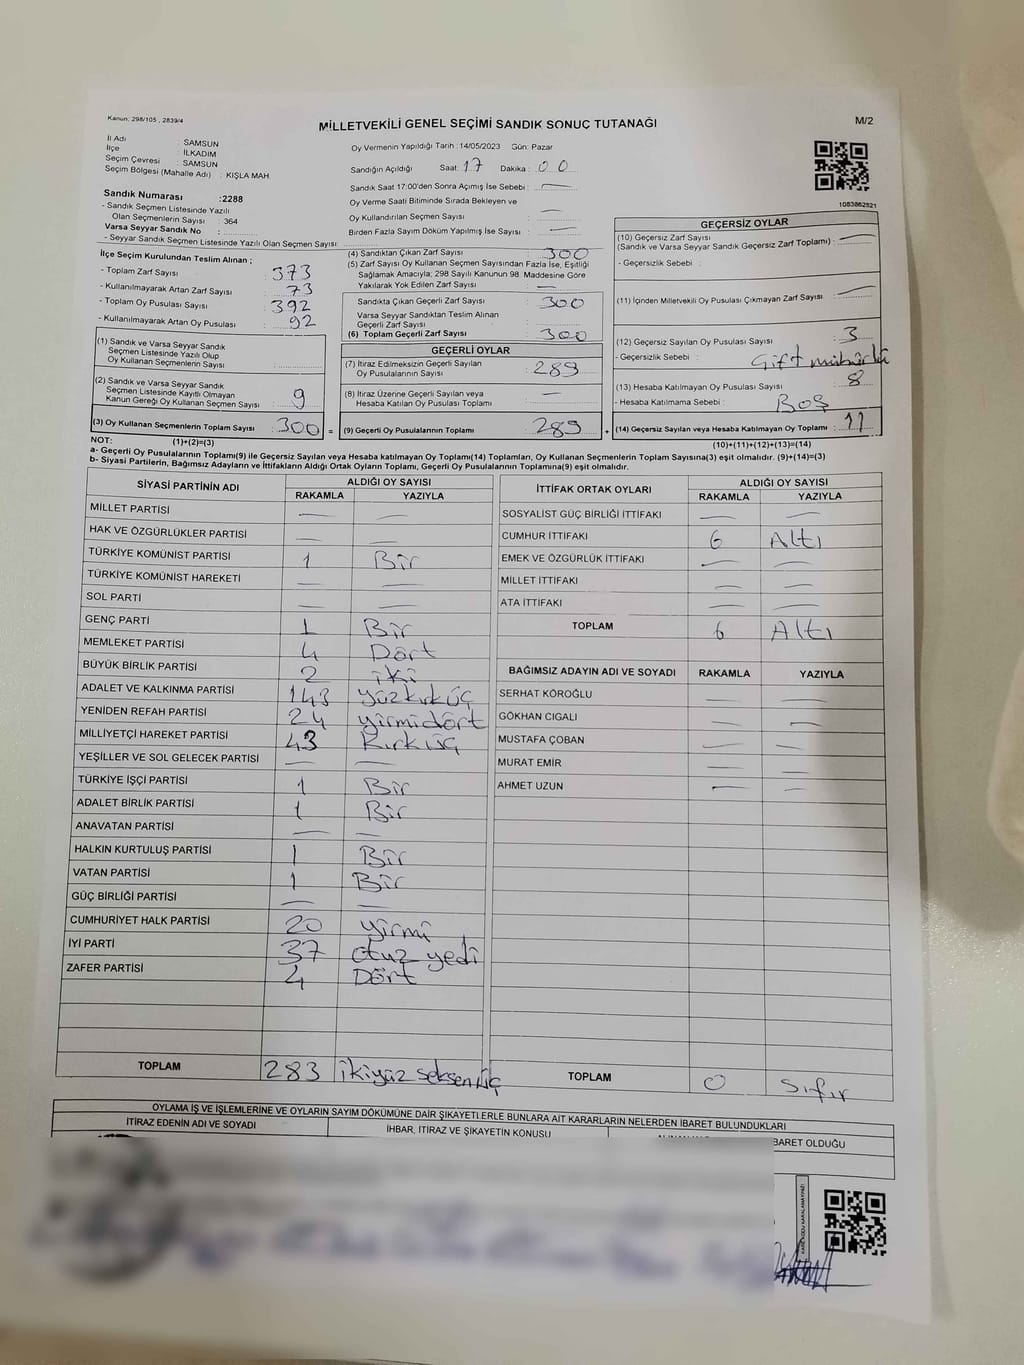 Kanun; 298/105 , 2839/4
MİLLETVEKİLİ GENEL SEÇİMİ SANDIK SONUÇ TUTANAĞI
M/2
İl Adı : SAMSUN
İlçe : İLKADIM
Seçim Çevresi : SAMSUN
Seçim Bölgesi (Mahalle Adı) : KIŞLA MAH.
Sandık Numarası :2288
- Sandık Seçmen Listesinde Yazılı
Olan Seçmenlerin Sayısı : 364
Varsa Seyyar Sandık No :
- Seyyar Sandık Seçmen Listesinde Yazılı Olan Seçmen Sayısı:
Oy Vermenin Yapıldığı Tarih : 14/05/2023 Gün: Pazar
Sandığın Açıldığı Saat: 17 Dakika : 00
Sandık Saat 17:00'den Sonra Açımış İse Sebebi : —
Oy Verme Saati Bitiminde Sırada Bekleyen ve
Oy Kullandırılan Seçmen Sayısı —
Birden Fazla Sayım Döküm Yapılmış İse Sayısı : —
1083862521
İlçe Seçim Kurulundan Teslim Alınan ;
- Toplam Zarf Sayısı : 373
- Kullanılmayarak Artan Zarf Sayısı : 73
- Toplam Oy Pusulası Sayısı : 392
- Kullanılmayarak Artan Oy Pusulası : 92
(1) Sandık ve Varsa Seyyar Sandık
Seçmen Listesinde Yazılı Olup
Oy Kullanan Seçmenlerin Sayısı :
(2) Sandık ve Varsa Seyyar Sandık
Seçmen Listesinde Kayıtlı Olmayan
Kanun Gereği Oy Kullanan Seçmen Sayısı : 9
(3) Oy Kullanan Seçmenlerin Toplam Sayısı : 300
(4) Sandıktan Çıkan Zarf Sayısı : 300
(5) Zarf Sayısı Oy Kullanan Seçmen Sayısından Fazla İse, Eşitliği
Sağlamak Amacıyla; 298 Sayılı Kanunun 98. Maddesine Göre
Yakılarak Yok Edilen Zarf Sayısı : —
Sandıkta Çıkan Geçerli Zarf Sayısı : 300
Varsa Seyyar Sandıktan Teslim Alınan
Geçerli Zarf Sayısı :
(6) Toplam Geçerli Zarf Sayısı : 300
GEÇERLİ OYLAR
(7) İtiraz Edilmeksizin Geçerli Sayılan
Oy Pusulalarının Sayısı : 289
(8) İtiraz Üzerine Geçerli Sayılan veya
Hesaba Katılan Oy Pusulası Toplamı : —
= (9) Geçerli Oy Pusulalarının Toplamı : 289
GEÇERSİZ OYLAR
(10) Geçersiz Zarf Sayısı
(Sandık ve Varsa Seyyar Sandık Geçersiz Zarf Toplamı) : —
- Geçersizlik Sebebi :
(11) İçinden Milletvekili Oy Pusulası Çıkmayan Zarf Sayısı : —
(12) Geçersiz Sayılan Oy Pusulası Sayısı : 3
- Geçersizlik Sebebi : Çift mühürlü
(13) Hesaba Katılmayan Oy Pusulası Sayısı : 8
- Hesaba Katılmama Sebebi : Boş
+ (14) Geçersiz Sayılan veya Hesaba Katılmayan Oy Toplamı : 11
NOT: (1)+(2)=(3)
(10)+(11)+(12)+(13)=(14)
a- Geçerli Oy Pusulalarının Toplamı(9) ile Geçersiz Sayılan veya Hesaba Katılmayan Oy Toplamı(14) Toplamları, Oy Kullanan Seçmenlerin Toplam Sayısına(3) eşit olmalıdır. (9)+(14)=(3)
b- Siyasi Partilerin, Bağımsız Adayların ve İttifakların Aldığı Ortak Oyların Toplamı, Geçerli Oy Pusulalarının Toplamına(9) eşit olmalıdır.
SİYASİ PARTİNİN ADI ALDIĞI OY SAYISI
RAKAMLA YAZIYLA
MİLLET PARTİSİ — —
HAK VE ÖZGÜRLÜKLER PARTİSİ — —
TÜRKİYE KOMÜNİST PARTİSİ 1 Bir
TÜRKİYE KOMÜNİST HAREKETİ — —
SOL PARTİ — —
GENÇ PARTİ 1 Bir
MEMLEKET PARTİSİ 4 Dört
BÜYÜK BİRLİK PARTİSİ 2 iki
ADALET VE KALKINMA PARTİSİ 143 yüzkırküç
YENİDEN REFAH PARTİSİ 24 yirmidört
MİLLİYETÇİ HAREKET PARTİSİ 43 Kırküç
YEŞİLLER VE SOL GELECEK PARTİSİ — —
TÜRKİYE İŞÇİ PARTİSİ 1 Bir
ADALET BİRLİK PARTİSİ 1 Bir
ANAVATAN PARTİSİ — —
HALKIN KURTULUŞ PARTİSİ 1 Bir
VATAN PARTİSİ 1 Bir
GÜÇ BİRLİĞİ PARTİSİ — —
CUMHURİYET HALK PARTİSİ 20 yirmi
İYİ PARTİ 37 otuz yedi
ZAFER PARTİSİ 4 Dört
TOPLAM 283 ikiyüz seksen üç
İTTİFAK ORTAK OYLARI ALDIĞI OY SAYISI
RAKAMLA YAZIYLA
SOSYALİST GÜÇ BİRLİĞİ İTTİFAKI — —
CUMHUR İTTİFAKI 6 Altı
EMEK VE ÖZGÜRLÜK İTTİFAKI — —
MİLLET İTTİFAKI — —
ATA İTTİFAKI — —
TOPLAM 6 Altı
BAĞIMSIZ ADAYIN ADI VE SOYADI RAKAMLA YAZIYLA
SERHAT KÖROĞLU — —
GÖKHAN CIGALI — —
MUSTAFA ÇOBAN — —
MURAT EMİR — —
AHMET UZUN — —
TOPLAM 0 Sıfır
OYLAMA İŞ VE İŞLEMLERİNE VE OYLARIN SAYIM DÖKÜMÜNE DAİR ŞİKAYETLERLE BUNLARA AİT KARARLARIN NELERDEN İBARET BULUNDUKLARI
İTİRAZ EDENİN ADI VE SOYADI İHBAR, İTİRAZ VE ŞİKAYETİN KONUSU BARET OLDUĞU